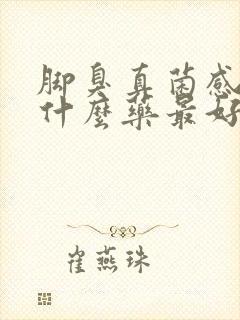 脚臭真菌感
什麼藥最好
崔燕珠